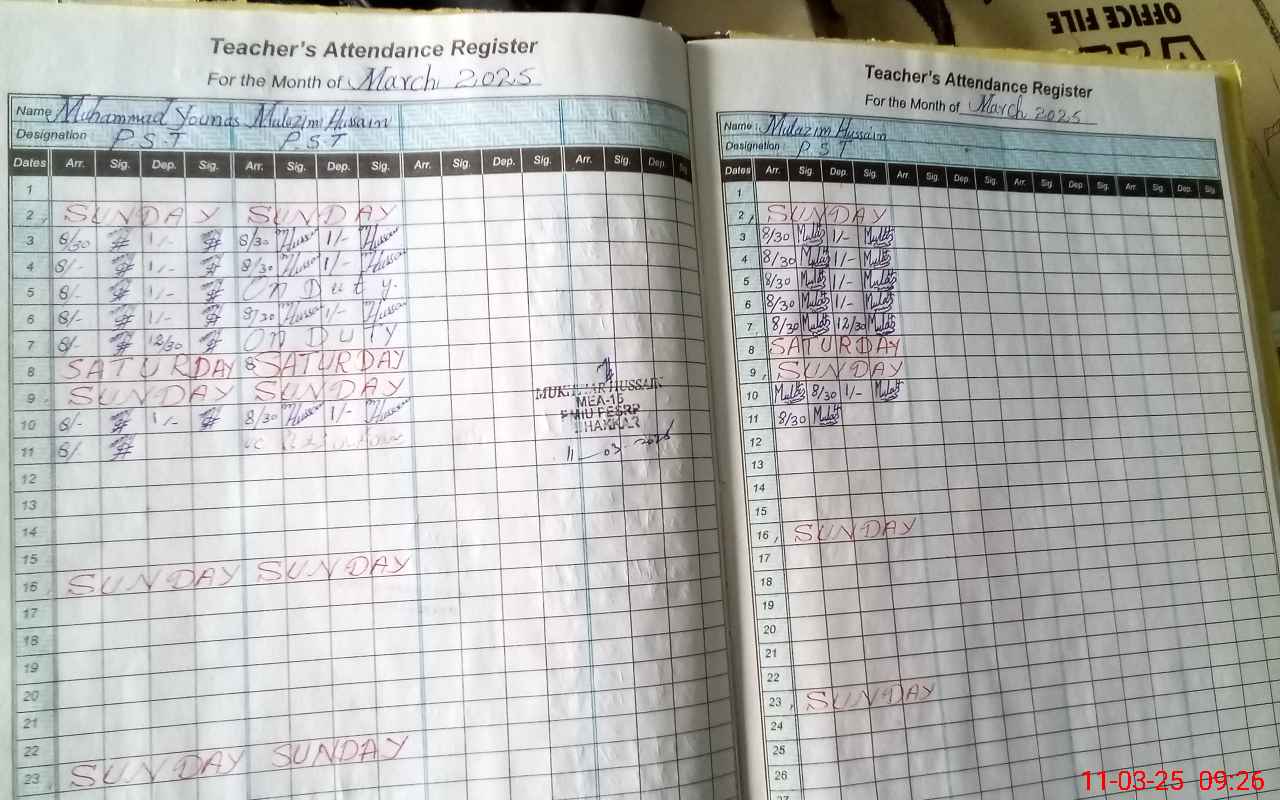 OFFICE FILE
Teacher's Attendance Register
For the Month of March 2025
Name Muhammad Younas Mulazim Hussain
Designation P.S.T P.S.T
Dates Arr. Sig. Dep. Sig. Arr. Sig. Dep. Sig. Arr. Sig. Dep. Sig. Arr. Sig. Dep.
1
2, SUNDAY SUNDAY
3 8/30 1/- 8/30 Hussain 1/- Hussain
4 8/- 1/- 8/30 Hussain 1/- Hussain
5 8/- 1/- On Duty.
6 8/- 1/- 8/30 Hussain 1/- Hussain
7 8/- 12/30 On DUTY
8 SATURDAY SATURDAY
9, SUNDAY SUNDAY
10 8/- 1/- 8/30 Hussain 1/- Hussain
11 8/-
12
13
14
15
16 SUNDAY SUNDAY
17
18
19
20
21
22
23 SUNDAY SUNDAY
MUKHTIAR HUSSAIN
MEA-15
11-03-2025
Teacher's Attendance Register
For the Month of March 2025
Name: Mulazim Hussain
Designation P.S.T
Dates Arr. Sig. Dep. Sig. Arr. Sig. Dep. Sig. Arr. Sig. Dep. Sig. Arr. Sig. Dep. Sig.
1
2, SUNDAY
3 8/30 1/-
4 8/30 1/-
5 8/30 1/-
6 8/30 1/-
7, 8/30 12/30
8 SATURDAY
9, SUNDAY
10 8/30 1/-
11 8/30
12
13
14
15
16, SUNDAY
17
18
19
20
21
22
23, SUNDAY
24
25
26
27
11-03-25 09:26